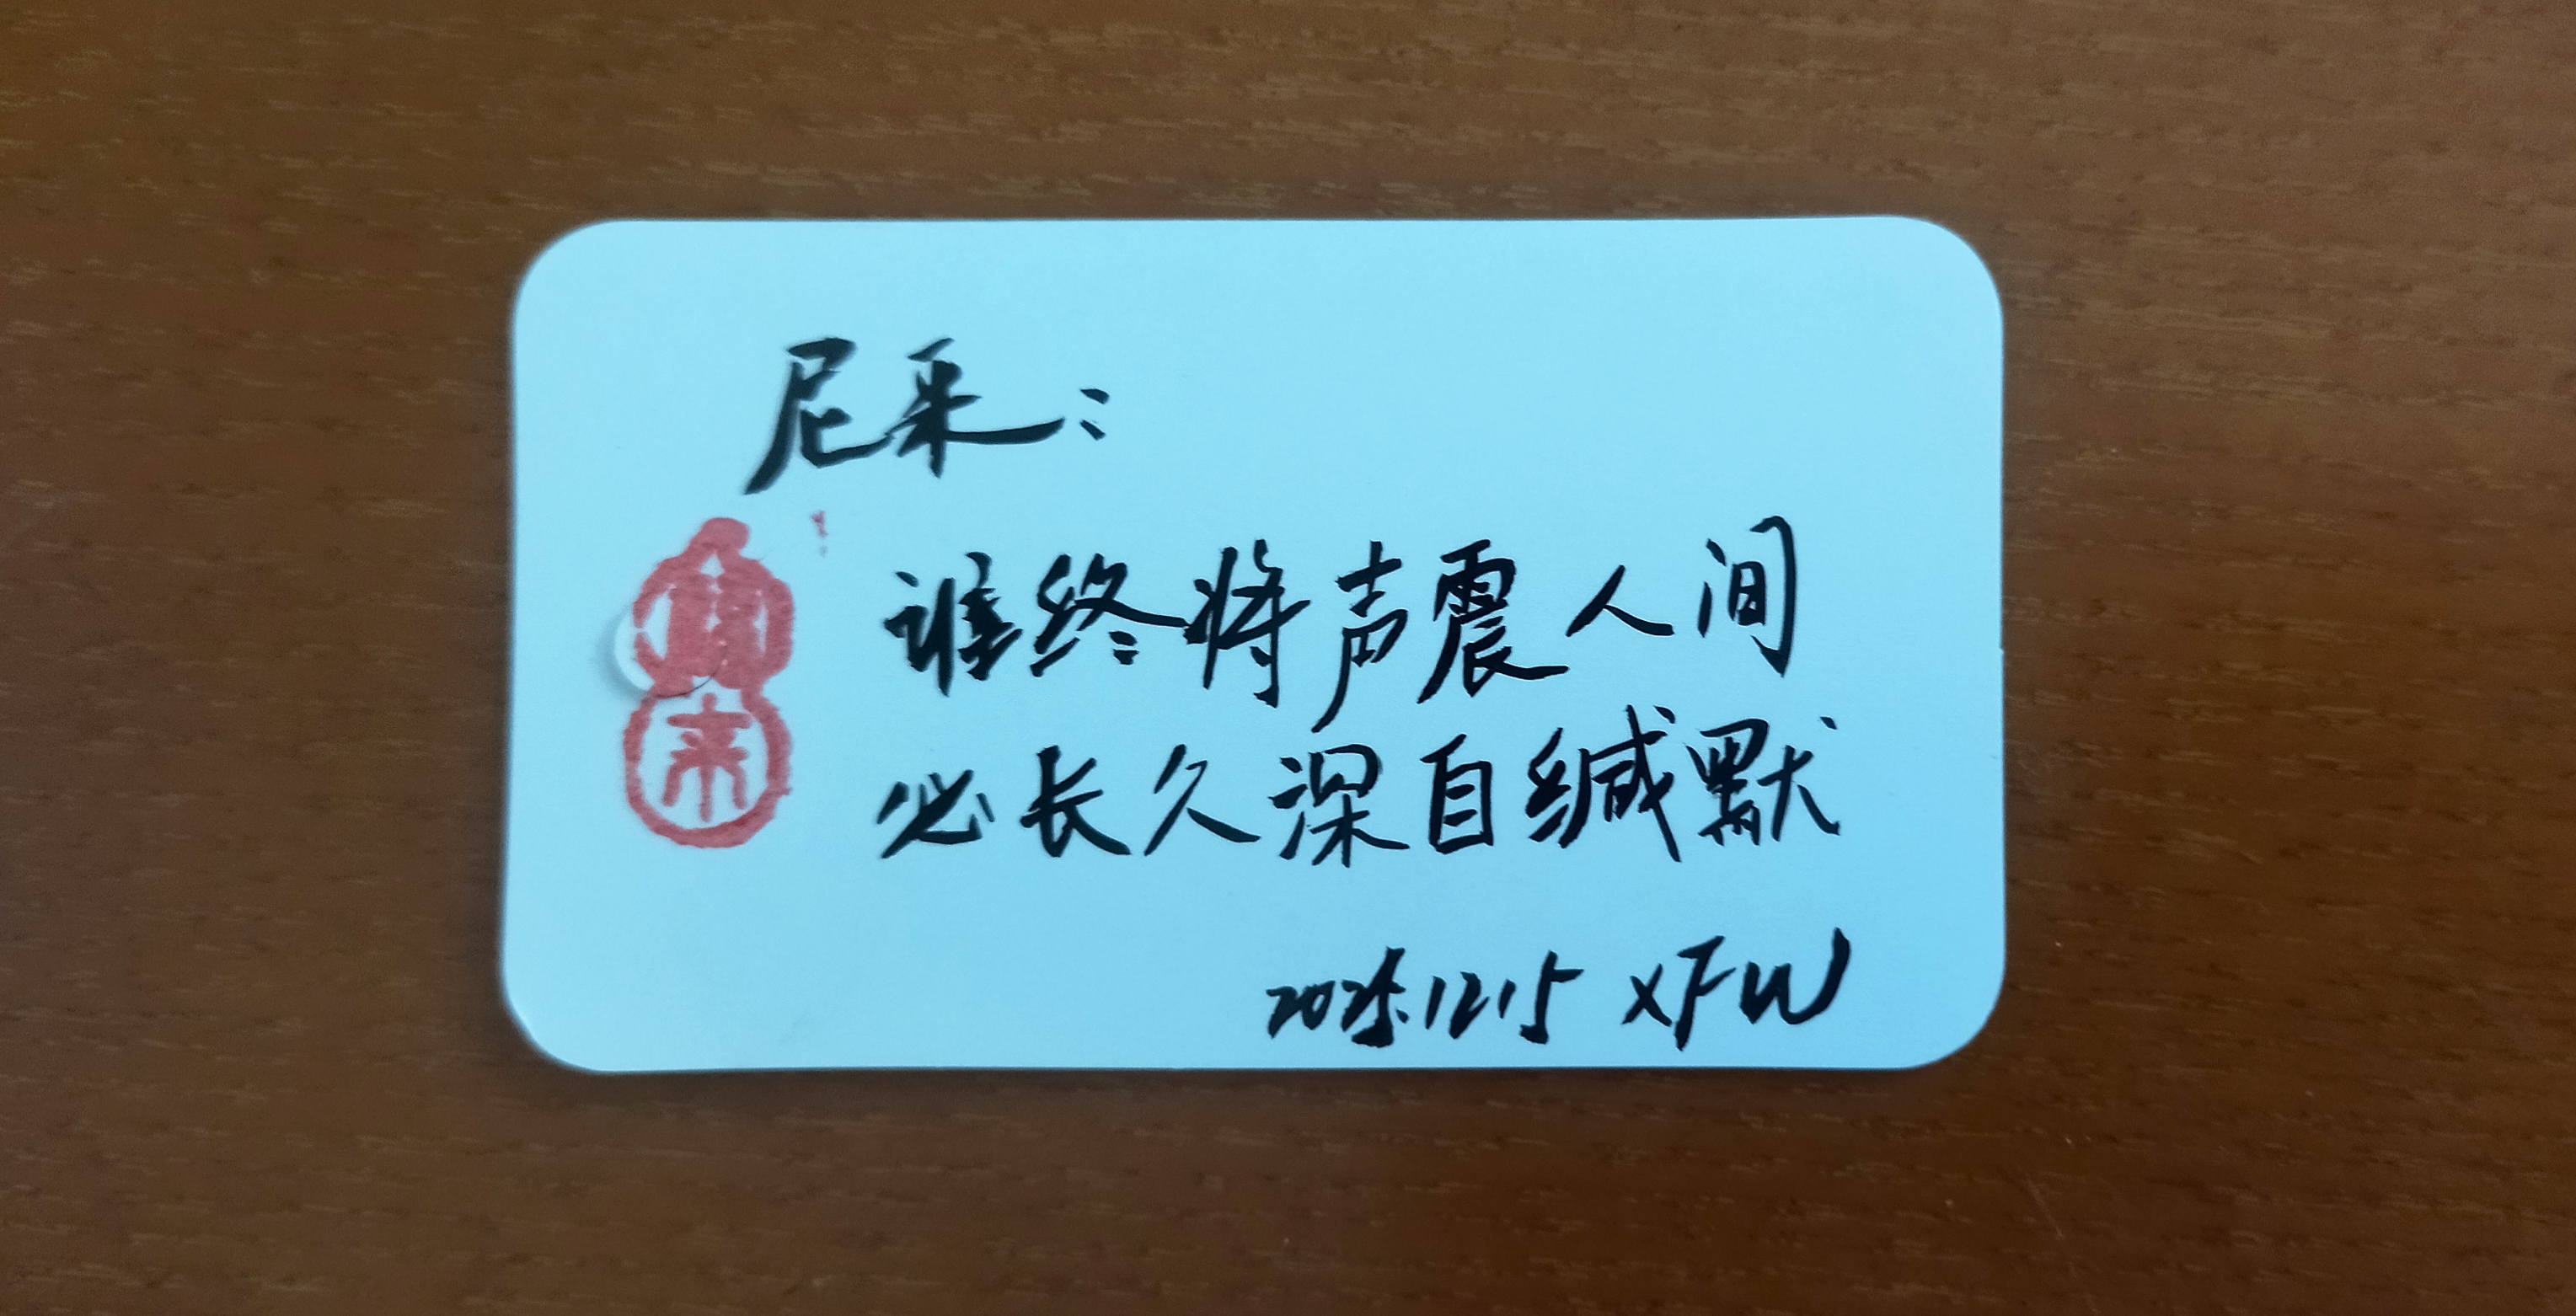 尼采：
谁终将声震人间
必长久深自缄默
2025.12.15 XFW